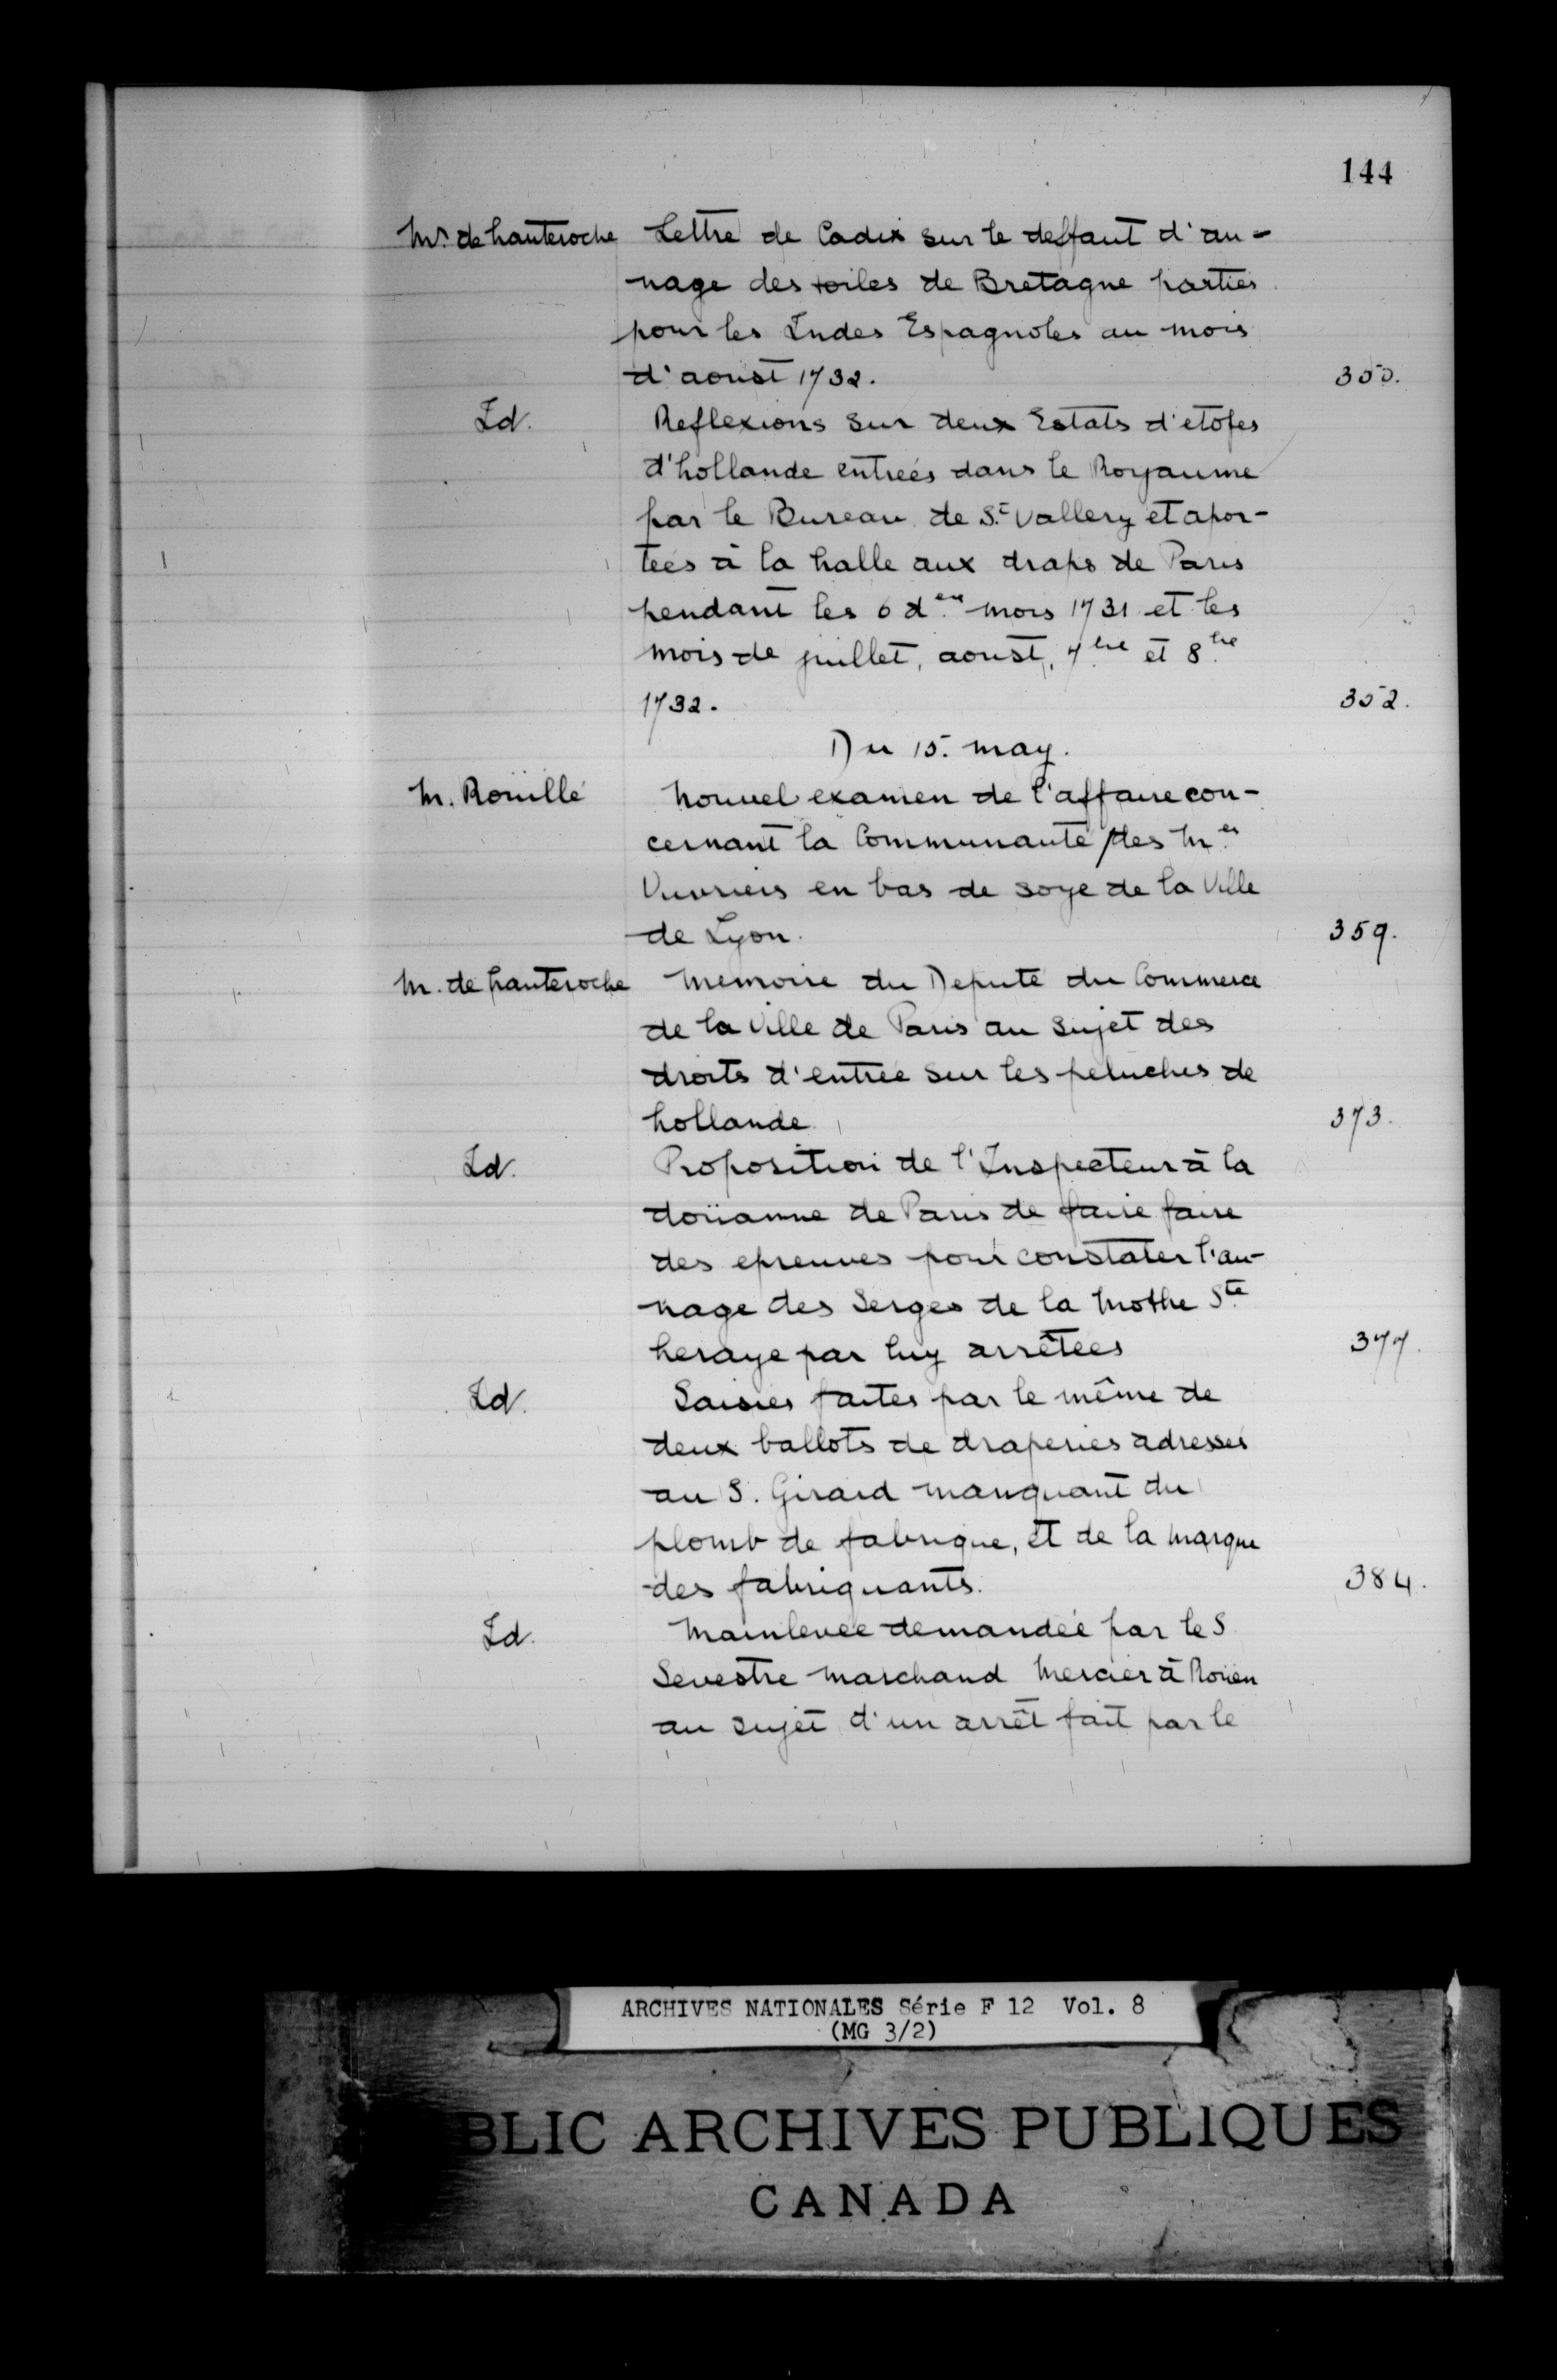 144
Mr. de hauteroche Lettre de Cadix sur le deffaut d'au-
nage des toiles de Bretagne parties
pour les Indes Espagnoles au mois
d'aoust 1732. 350.
Id. Reflexions sur deux Estats d'etofes
d'hollande entrées dans le Royaume
par le Bureau de St. Vallery et apor-
tées à la halle aux draps de Paris
pendant les 6 d.ers mois 1731 et les
mois de juillet, aoust, 7bre et 8bre
1732. 352.
Du 15. may.
M. Roüillé Nouvel examen de l'affaire con-
cernant la Communauté des M.es
Ouvriers en bas de soye de la Ville
de Lyon. 359.
M. de hauteroche Memoire du Deputé du Commerce
de la Ville de Paris au sujet des
droits d'entrée sur les peluches de
hollande. 373.
Id. Proposition de l'Inspecteur à la
doüanne de Paris de faire faire
des epreuves pour constater l'au-
nage des Serges de la Mothe Ste
heraye par luy arrêtées 377.
Id. Saisies faites par le même de
deux ballots de draperies adressés
au S. Girard manquant du
plomb de fabrique, et de la marque
des fabriquants. 384.
Id. Mainlevée demandée par le S
Sevestre marchand Mercier à Roüen
au sujet d'un arrêt fait par le
ARCHIVES NATIONALES Série F 12 Vol. 8
(MG 3/2)
BLIC ARCHIVES PUBLIQUES
CANADA